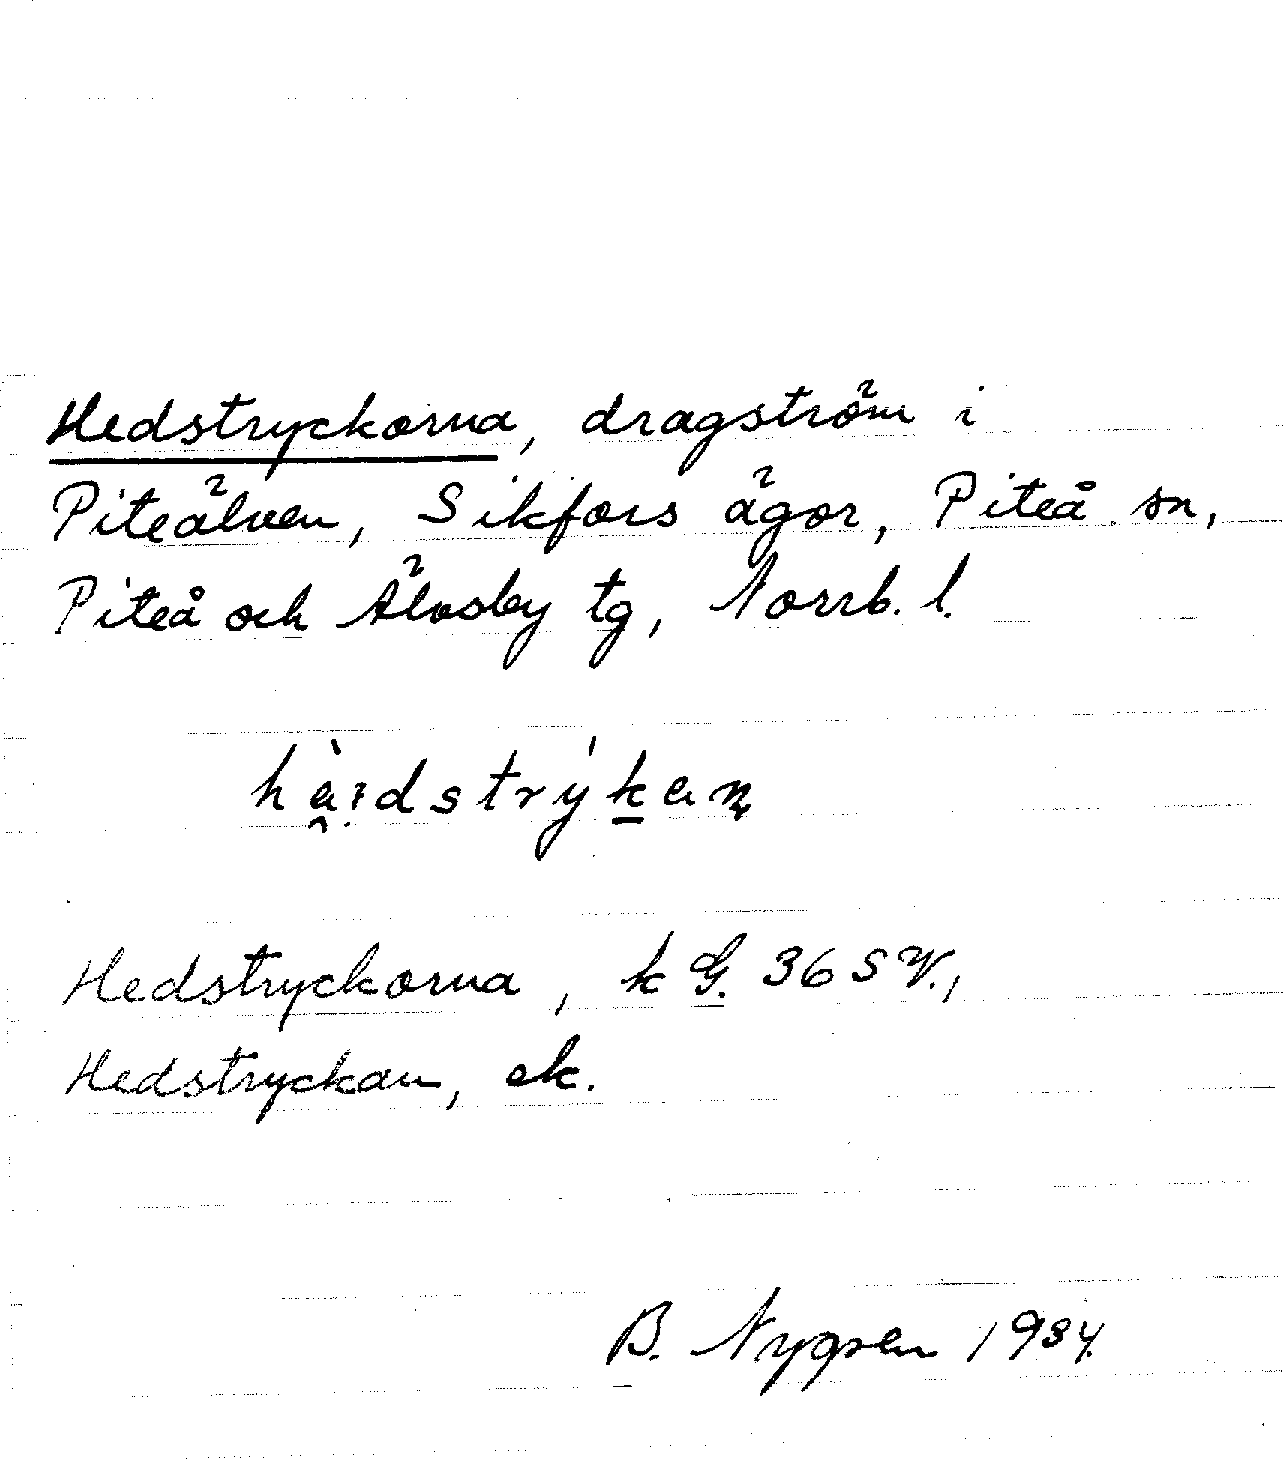 Hedstryckorna, dragström i
Piteälven, Sikfors ägor, Piteå sn,
Piteå och Älvsby tg, Norrb. l.
Hedstryckorna, k G. 36 SV.,
Hedstryckan, ek.
B. Nygren 1934.